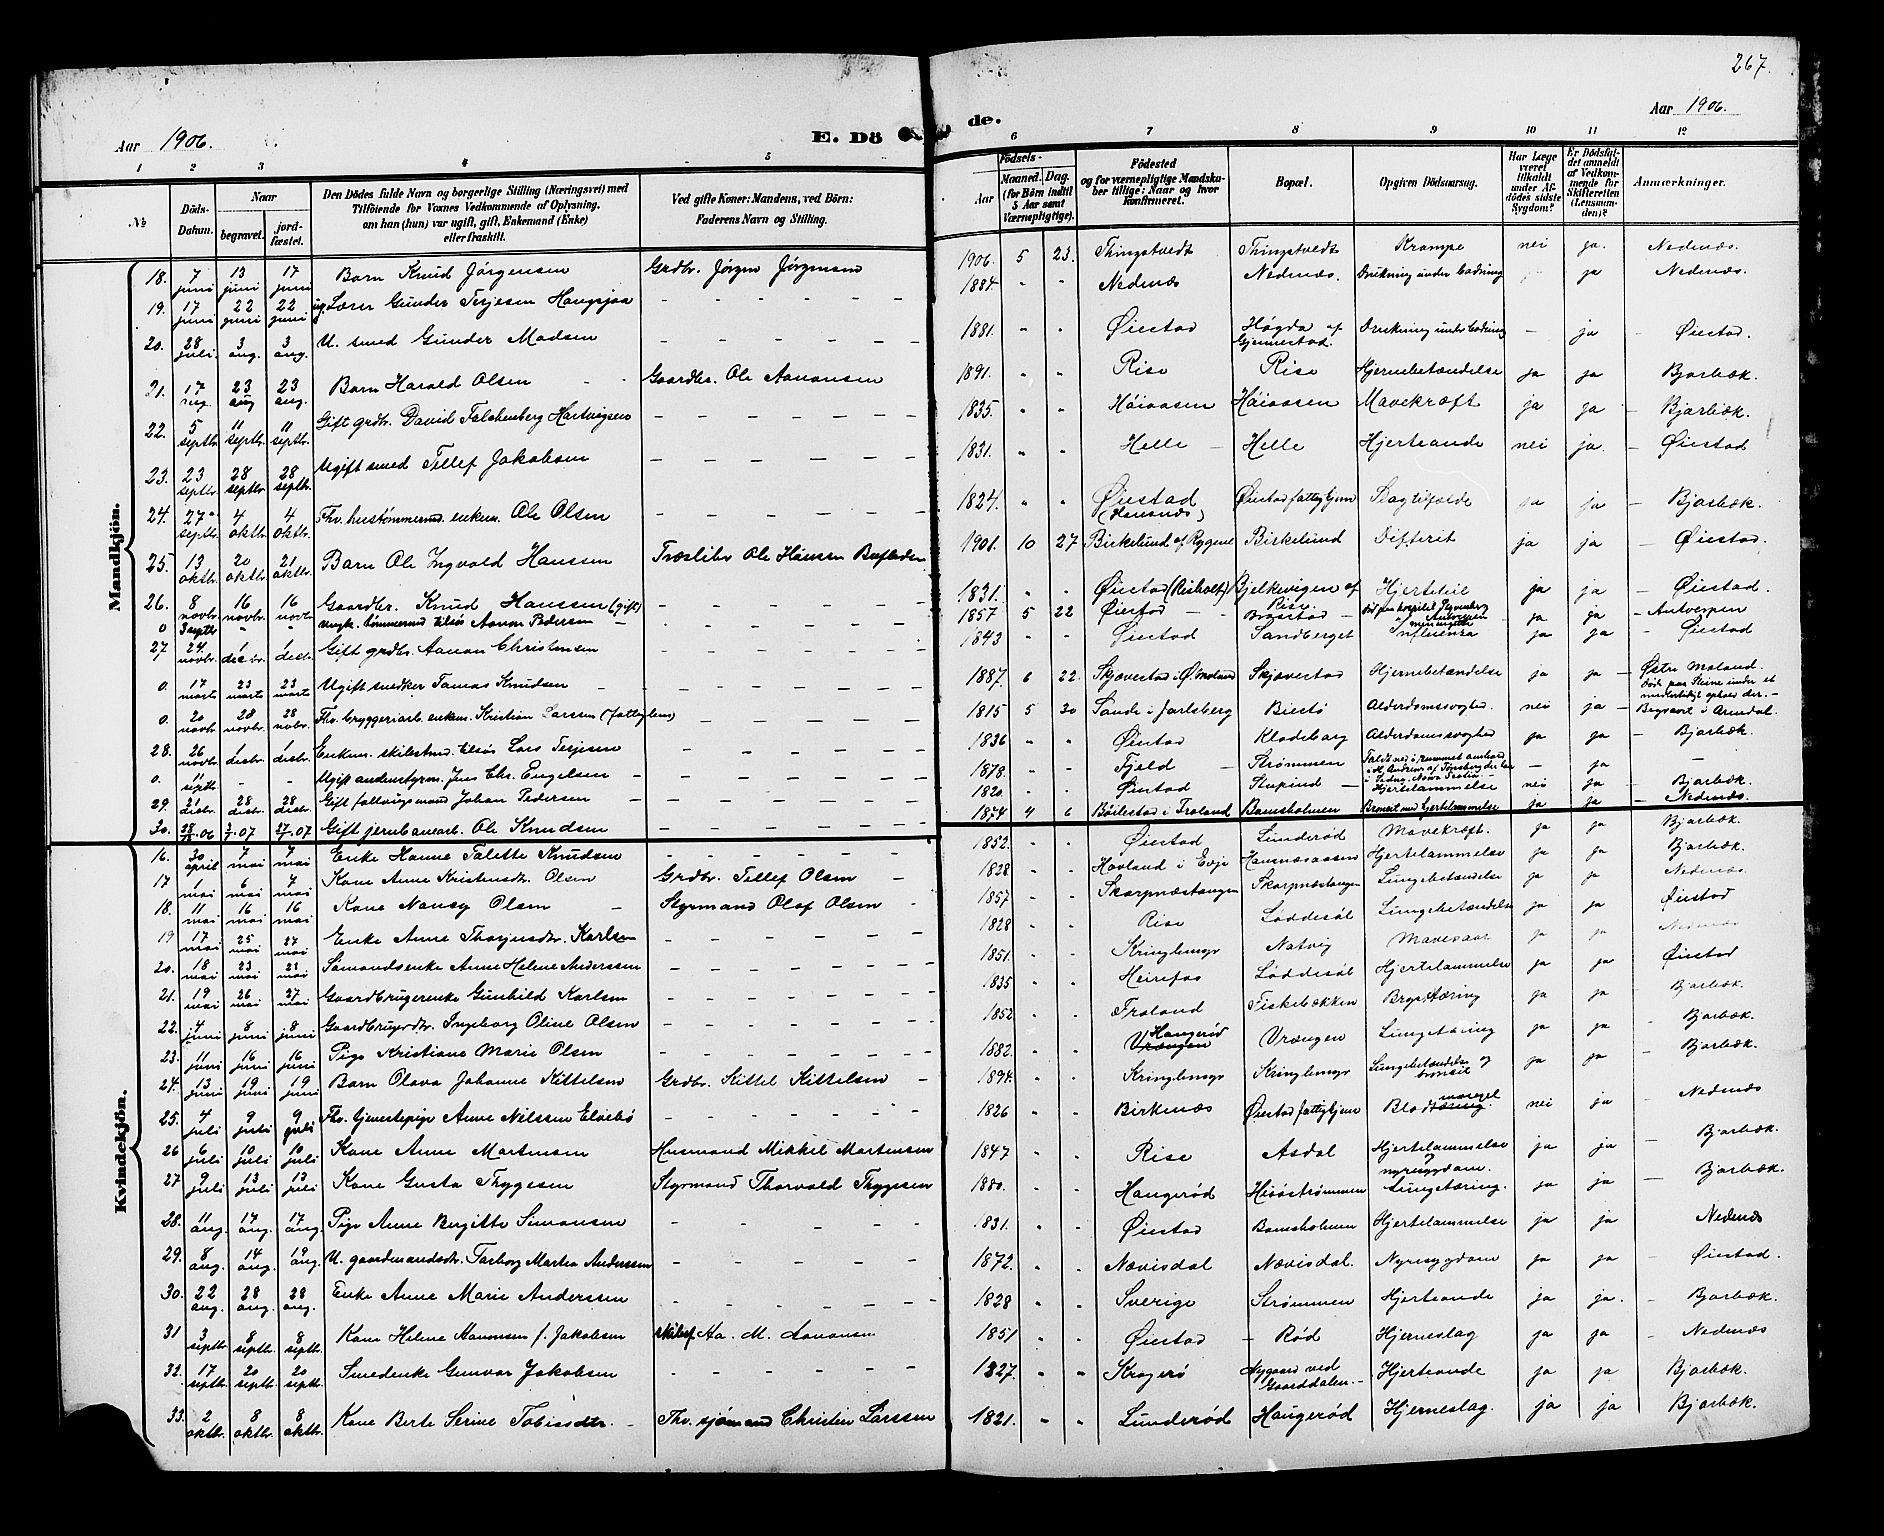 267.
Aar 1906.
E. Dö de.
Aar 1906.
1 2 3 4 5 6 7 8 9 10 11 12
№
Döds-Datum.
Naar
begravet.
jordfæstet.
Den Dödes fulde Navn og borgerlige Stilling (Næringsvei) med
Tilföiende for Voxnes Vedkommende af Oplysning,
om han (hun) var ugift, gift, Enkemand (Enke)
eller fraskilt.
Ved gifte Koner: Mandens, ved Börn:
Faderens Navn og Stilling.
Födsels-
Aar
Maaned. Dag.
(for Börn indtil
5 Aar samt
Værnepligtige).
Födested
og for værnepligtige Mandsku-
ber tillige: Naar og hvor
konfirmeret.
Bopæl.
Opgiven Dödsaarsag.
Har Læge
været
tilkaldt
under Af-
dödes sidste
Sygdom?
Er Dödsfal-
det anmeldt
af Vedkom-
mende for
Skifteretten
(Lensman-
den)?
Anmærkninger.
Mandkjön.
18. 7 juni 13 juni 17 juni Barn Knud Jörgensen Grdbr. Jörgen Jörgensen 1906 5 23 Thingstvedt Thingstvedt Krampe nei ja. Nedenæs.
19. 17 juni 22 juni 22 juni ug. Lærer Gunder Terjesen Haugsjaa 1884. " " Nedenæs Nedenæs. Drukning under badning ja Nedenæs.
20. 28 juli 3 aug. 3 aug. U. smed Gunder Madsen 1881. " " Øiestad Høgda af Gjennestad. Drukning under badning - ja Øiestad.
21. 17 aug. 23 aug 23 aug. Barn Harald Olsen Gaardbr. Ole Aanonsen 1891. " " Rise Rise Hjernebetændelse ja ja Bjorbæk.
22. 5 septbr. 11 septbr. 11 septbr. Gift grdbr. David Falchenberg Hartvigsen 1835. " " Håiaasen Håiaasen Mavekræft ja ja Bjorbæk.
23. 23 septbr. 28 septbr. 28 septbr. Ugift smed Tellef Jakobsen 1831. " " Helle Helle Hjerteonde nei ja. Øiestad
24. 27 septbr. 4 oktbr. 4 oktbr. Fhv. hustømmermd. enkem. Ole Olsen 1824. " " Øiestad Øiestad fattighjem Slagtilfælde ja ja Bjorbæk.
25. 13 oktbr. 20 oktbr. 21 oktbr. Barn Ole Ingvald Hanssen Træsliber Ole Hanssen 1901. 10 27 Birkelund af Rygene Birkelund Difterit ja ja Øiestad.
26. 8 novbr. 16 novbr. 16 novbr. Gaardbr. Knud Hanssen (gift) 1831. " " Øiestad Bjelkevigen af Rise. Hjertefeil ja ja Øiestad.
0 3 septbr " " ungk. tømmermd. tilsös Aanon Pedersen 1857 5 22 Øiestad ja ja Antverpen
27. 24. novbr. 1 decbr. 1 decbr. Gift grdbr. Aanon Christensen 1843 " " Øiestad Sandberget Influenza ja ja Øiestad
0. 17 marts 23 marts 23 marts Ugift snedker Tomas Knudsen 1887. 6 22. Skjævestad i Ø. Moland Skjævestad Hjernebetændelse ja ja Østre Moland. Død paa under et midlertidigt ophold der.
0. 20 novbr. 28 novbr. 28 novbr. Fhv. bryggeriarb. enkem. Kristian Larssen (fattiglem) 1815 5 30 Sande i Jarlsberg Biestø Alderdomssvaghed nei ja Begravet i Arendal.
28. 26 novbr. 1 decbr. 1 decbr. Enkem. skibstmd. tilsös Lars Terjesen 1836 " " Øiestad Klodeborg Alderdomssvaghed ja ja Bjorbæk.
0. 11 septbr - - Ugift andenstyrm. Jens Chr. Engelsen 1878. " " Fjeld Strømmen Faldt ned i rummet - ja
29. 21 decbr. 28 decbr. 28 decbr. Gift fattiglem Johan Pedersen 1820. " " Øiestad Stupind Hjertelammelse nei ja Bjorbæk.
30. 28/12 06 3/1 07 27/1 07 Gift jernbanearb. Ole Knudsen 1874 4 6 Böilestad i Froland Bamsholmen Bronsit med hjertelammelse ja ja Nedenæs.
Kvindekjön.
16. 30 april 7 mai 7 mai Enke Hanne Talette Knudsen 1852. Øiestad Lunderød Mavekræft. ja ja Bjorbæk.
17 1 mai 6 mai 7 mai Kone Anne Kristensdtr. Olsen Grdbr. Tellef Olsen 1828 " " Hovland i Evje Havnæsaasen Hjertelammelse ja ja Bjorbæk.
18. 11 mai 16 mai 16 mai Kone Nancy Olsen Styrmand Olaf Olsen 1857 " " Skarpnæstangen Skarpnæstangen Lungebetændelse ja ja Nedenæs.
19 17 mai 25 mai 27 mai Enke Anne Thorjusdtr. Karlsen 1828 " " Rise Løddesøl Lungebetændelse ja ja Øiestad
20. 18 mai 23 mai 23 mai Sömandsenke Anne Helene Anderssen 1851. " " Kringlemyr Natvig Mavesaar ja ja Nedenæs
21. 19 mai 26 mai 27 mai Gaardbrugerenke Gunhild Karlsen 1835 " " Heirefos Løddesøl Hjertelammelse ja ja Øiestad
22. 4 juni 8 juni 8 juni Gaardbrugerdtr. Ingeborg Oline Olsen 1852 " " Froland Fiskebækken Brysttæring ja ja Bjorbæk.
23. 11 juni 16 juni 16 juni Pige Kristiane Marie Olsen 1882. " " Haugerød Vrængen Vrængen Lungetæring ja ja Bjorbæk.
24. 13 juni 19 juni 19 juni Barn Olava Johanne Kittelsen Grdbr. Kittel Kittelsen 1894. " " Kringlemyr Kringlemyr Lungebetændelse og bronsit ja ja Bjorbæk.
25. 4 juli 9 juli 9 juli Fhv. tjenestepige Anne Nilssen 1826 " " Birkenæs Øiestad fattighjem Blodmangel nei ja Nedenæs
26 6 juli 10 juli 10 juli Kone Anne Martensen Husmand Mikkel Martensen 1847 " " Rise Asdal Hjertelammelse og nyresygdom. ja ja Bjorbæk.
27. 9 juli 13 juli 13 juli Kone Gusta Thygesen Styrmand Thorvald Thygesen 1880. " " Haugerød Hisöstrømmen Lungetæring. ja ja Bjorbæk.
28. 11 aug. 17 aug. 17 aug. Pige Anne Bergitte Simonsen 1831. " " Øiestad Bamsholmen Hjertelammelse ja ja Nedenæs
29. 8 aug. 14 aug. 19 aug. U. gaardmandsdtr. Torborg Martea Anderssen 1872. " " Nævisdal Nævisdal. Nyresygdom ja ja Øiestad.
30. 22 aug. 28 aug. 28 aug. Enke Anne Marie Anderssen 1828 " " Sverige Strømmen Hjerteonde ja ja. Bjorbæk.
31 3 septbr. 8 septbr. 8 septbr. Kone Helene Aanonsen f. Jakobsen skibsf. Aa. M. Aanonsen 1851 " " Øiestad Rød Hjerneslag ja ja Nedenæs
32. 17 septbr. 20 septbr. 20 septbr. Smedenke Gunvor Jakobsen 1827 " " Kragerö Nygaard ved Gaarddalen. Hjerteonde ja ja Bjorbæk.
33. 2 oktbr. 8 oktbr. 8 oktbr. Kone Berte Serine Tobiasdtr. Fhv. sjömand Christen Larssen 1821. " " Lunderød Haugerød Hjerneslag. ja ja Bjorbæk.